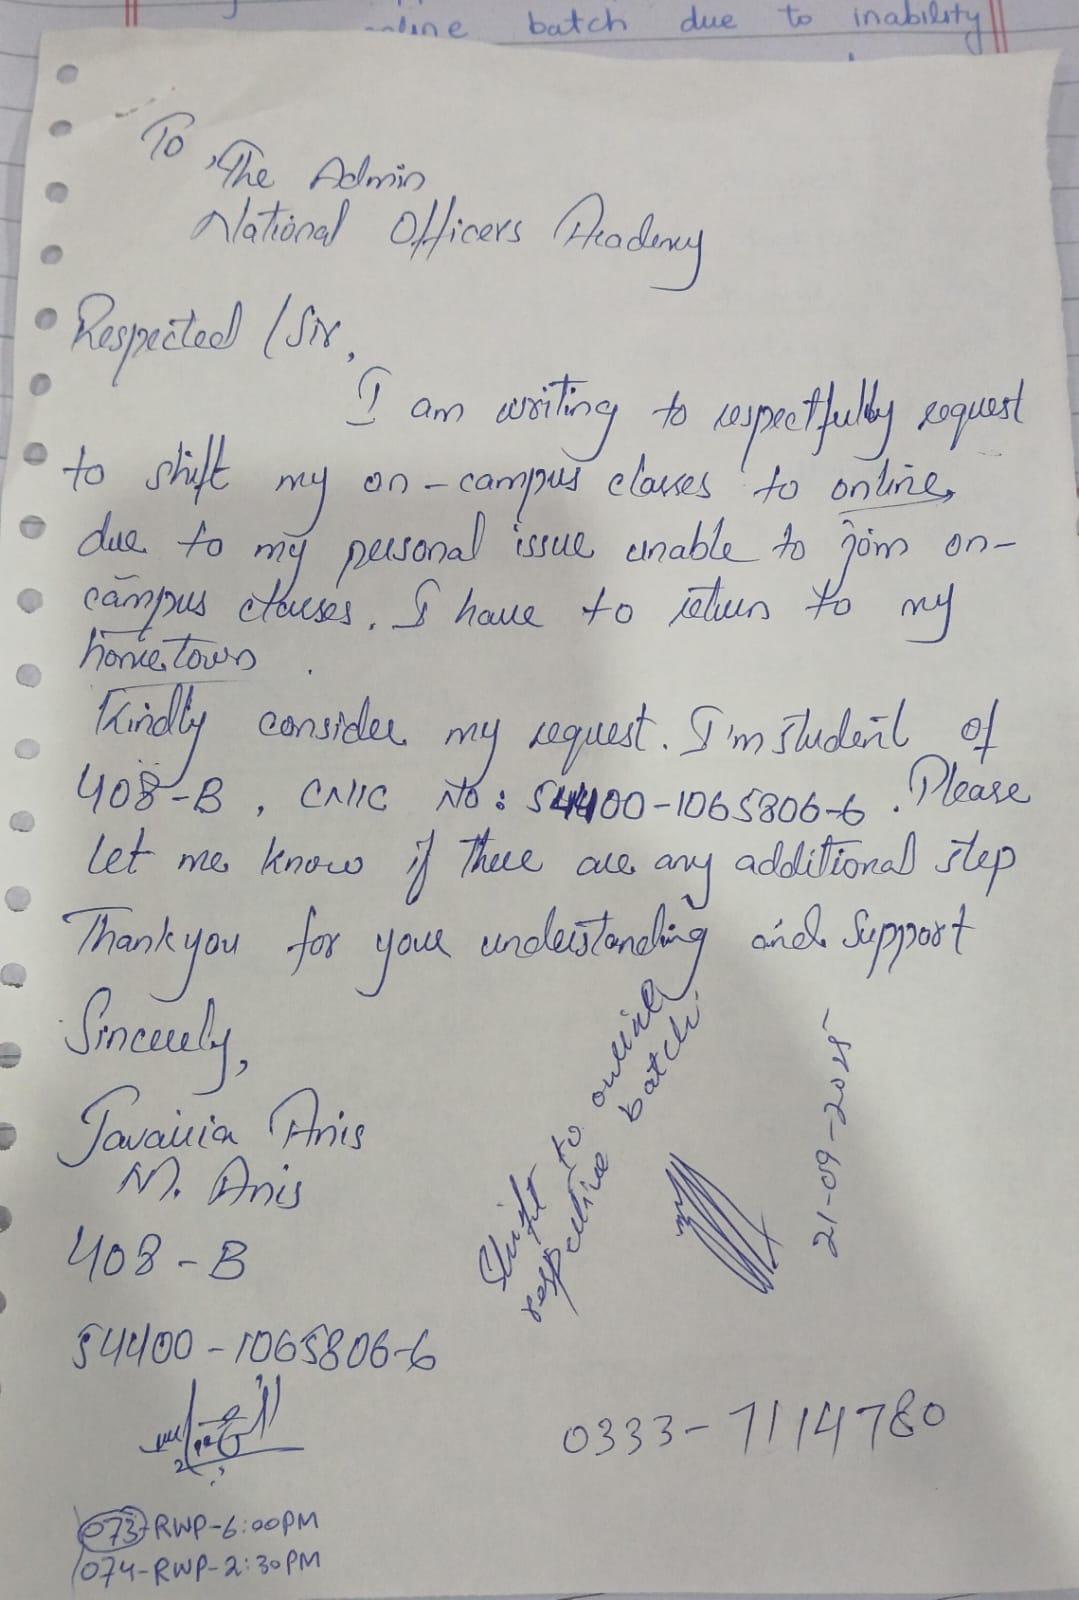 online batch due to inability
To
The Admin
National Officers Academy
Respected / Sir,
I am writing to respectfully request
to shift my on-campus classes to online,
due to my personal issue unable to join on-
campus classes. I have to return to my
hometown.
Kindly consider my request. I'm student of
408-B, CNIC No: 54400-1065806-6. Please
let me know if there are any additional step
Thank you for your understanding and support
Sincerely,
Javairia Anis
M. Anis
408-B
54400-1065806-6
Shift to online
respective batch.
21-09-2025
0333-7114780
073-RWP-6:00PM
074-RWP-2:30PM